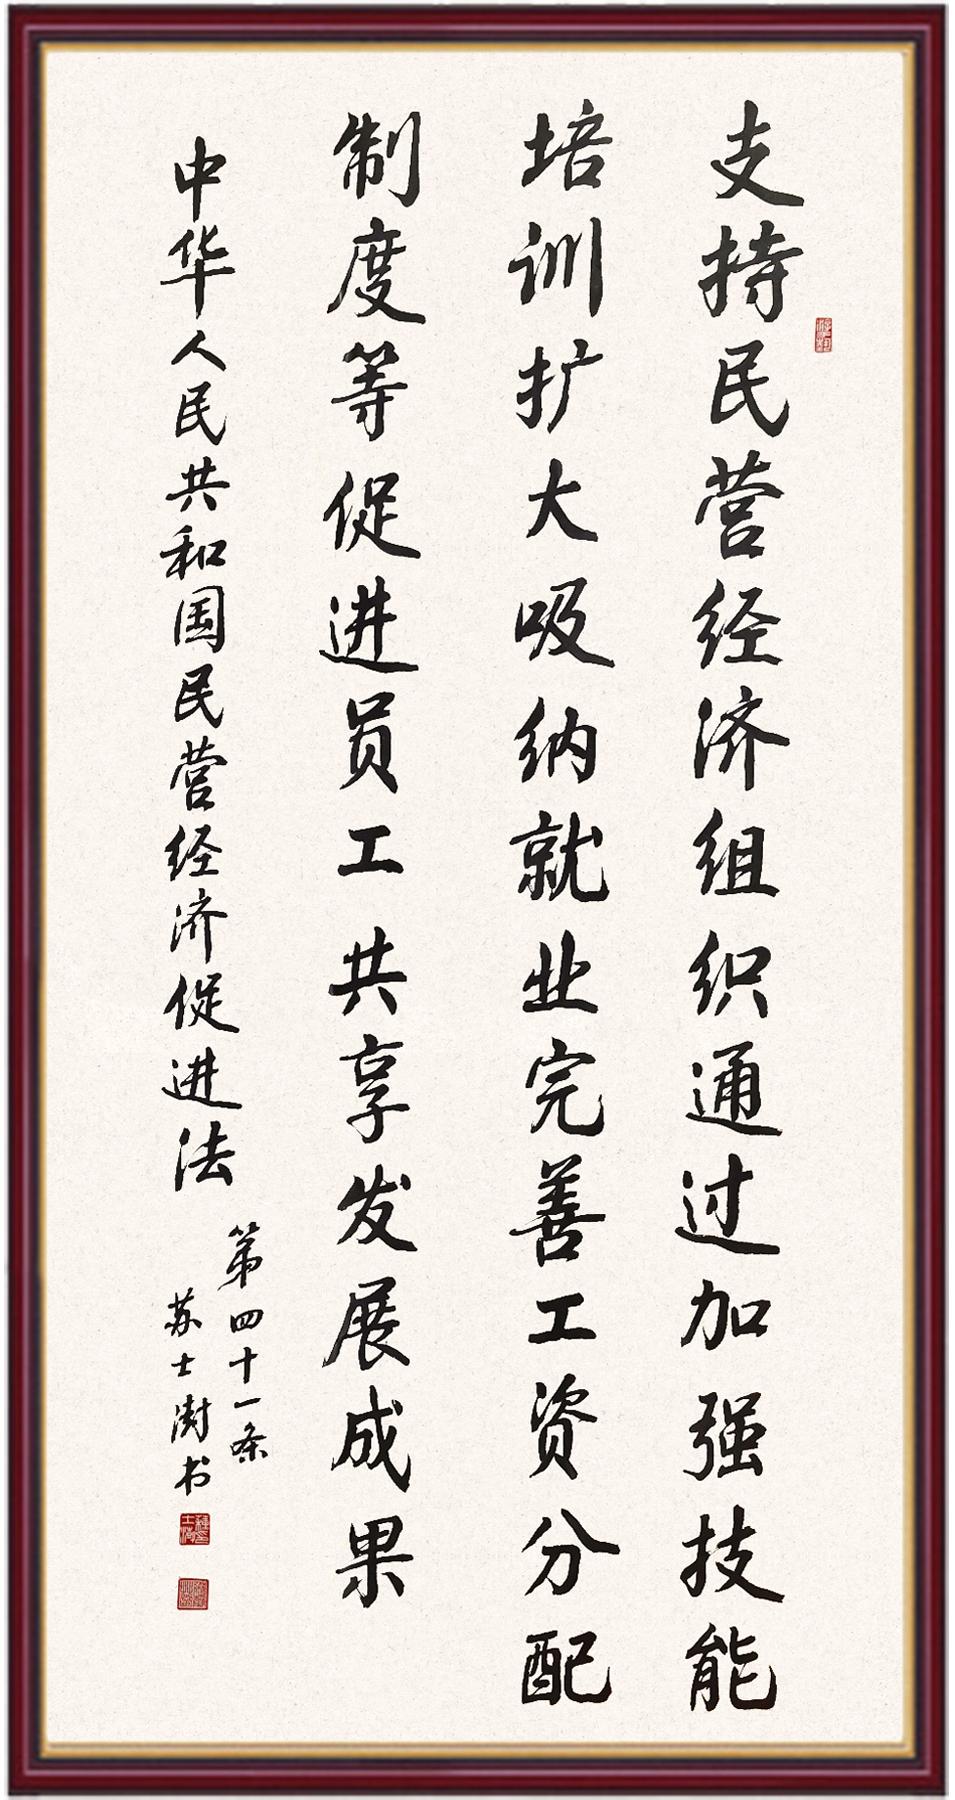 支持民营经济组织通过加强技能
培训扩大吸纳就业完善工资分配
制度等促进员工共享发展成果
中华人民共和国民营经济促进法
第四十一条
苏士澍书